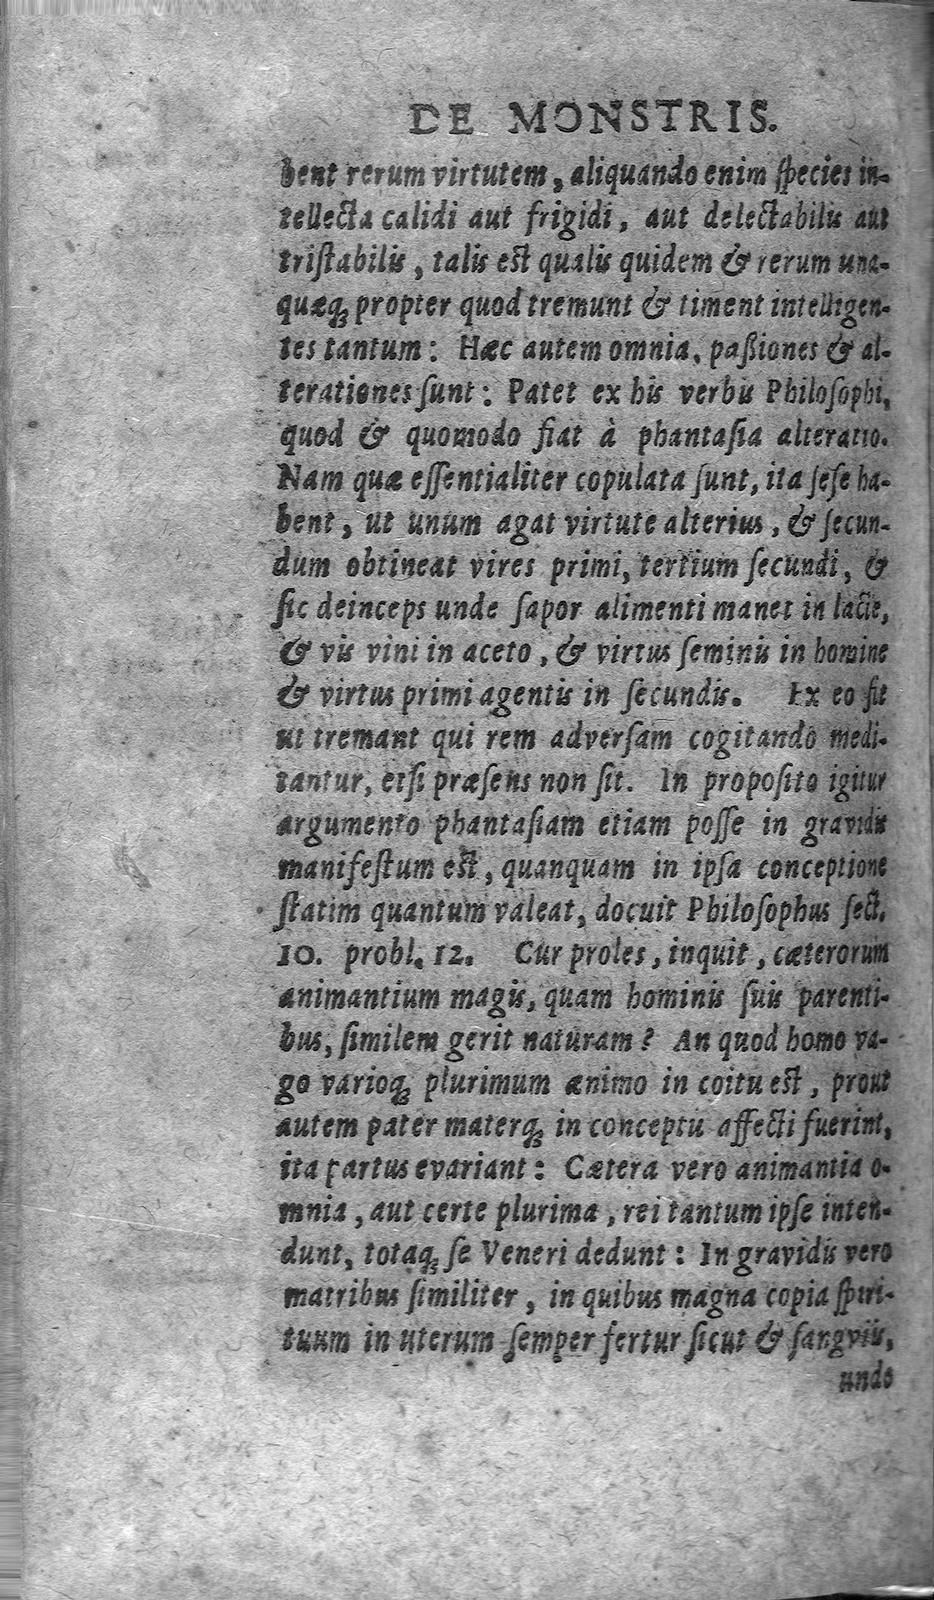 DE MONSTRIS.
bent rerum virtutem, aliquando enim ſpecies in-
tellecta calidi aut frigidi, aut delectabilis aut
triſtabilis, talis eſt qualis quidem & rerum una-
quæq; propter quod tremunt & timent intelligen-
tes tantum: Hæc autem omnia, paßiones & al-
terationes ſunt: Patet ex his verbis Philoſophi,
quod & quomodo fiat à phantaſia alteratio.
Nam quæ eſſentialiter copulata ſunt, ita ſeſe ha-
bent, ut unum agat virtute alterius, & ſecun-
dum obtineat vires primi, tertium ſecundi, &
ſic deinceps unde ſapor alimenti manet in lacte,
& vis vini in aceto, & virtus ſeminis in homine
& virtus primi agentis in ſecundis. Ex eo fit
ut tremant qui rem adverſam cogitando medi-
tantur, etſi præſens non ſit. In propoſito igitur
argumento phantaſiam etiam poſſe in gravidis
manifeſtum eſt, quanquam in ipſa conceptione
ſtatim quantum valeat, docuit Philoſophus ſect.
10. probl. 12. Cur proles, inquit, cæterorum
animantium magis, quam hominis ſuis parenti-
bus, ſimilem gerit naturam? An quod homo va-
go varioq; plurimum animo in coitu eſt, prout
autem pater materq; in conceptu affecti fuerint,
ita partus evariant: Cætera vero animantia o-
mnia, aut certe plurima, rei tantum ipſe inten-
dunt, totaq; ſe Veneri dedunt: In gravidis vero
matribus ſimiliter, in quibus magna copia ſpiri-
tuum in uterum ſemper fertur ſicut & ſangviis,
unde